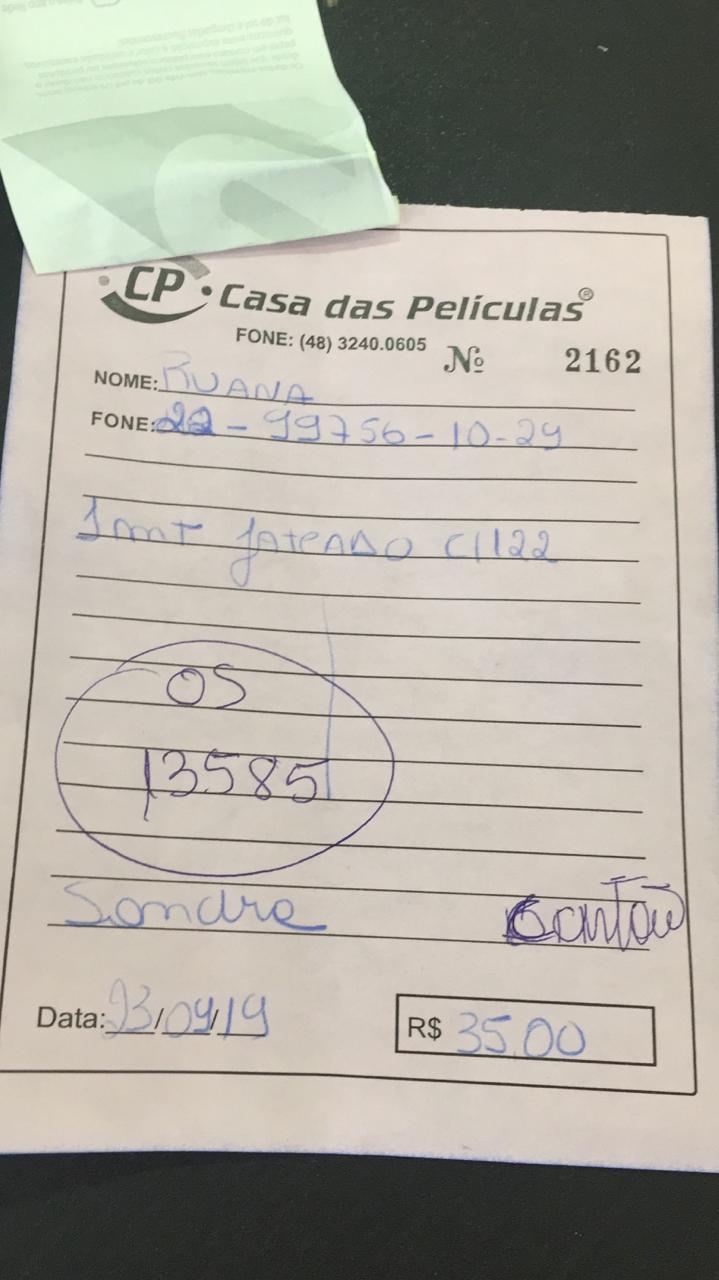 CP
Casa das Películas®
FONE: (48) 3240.0605 Nº 2162
NOME: RUANA
FONE: 22-99756-10-29
1 mt jateado C1122
OS
13585
Sandra
Cartão
Data: 23/09/19
R$ 35,00